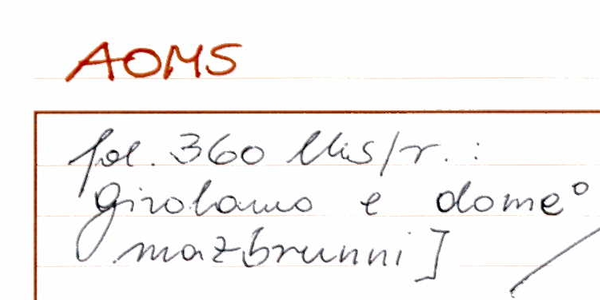 AOMS
fol. 360 bis/r. :
Girolamo e dome°
mazbrunni]